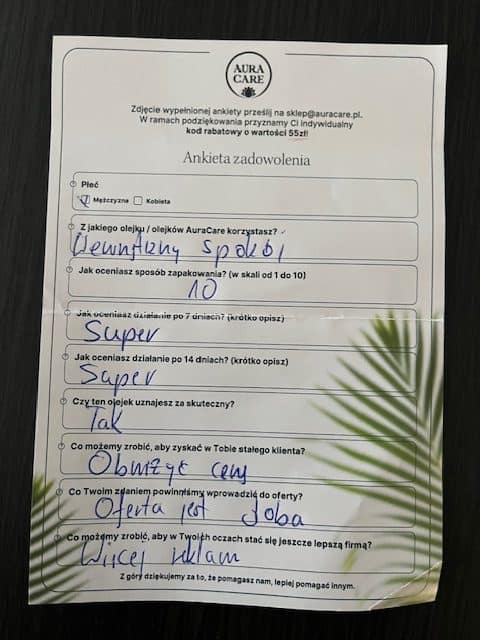 AURA
CARE
Zdjęcie wypełnionej ankiety prześlij na sklep@auracare.pl.
W ramach podziękowania przyznamy Ci indywidualny
kod rabatowy o wartości 55zł!
Ankieta zadowolenia
Płeć
Mężczyzna Kobieta
Z jakiego olejku / olejków AuraCare korzystasz?
Wewnętrzny spokój
Jak oceniasz sposób zapakowania? (w skali od 1 do 10)
10
Jak oceniasz działanie po 7 dniach? (krótko opisz)
Super
Jak oceniasz działanie po 14 dniach? (krótko opisz)
Super
Czy ten olejek uznajesz za skuteczny?
Tak
Co możemy zrobić, aby zyskać w Tobie stałego klienta?
Obniżyć ceny
Co Twoim zdaniem powinniśmy wprowadzić do oferty?
Oferta jest doba
Co możemy zrobić, aby w Twoich oczach stać się jeszcze lepszą firmą?
Więcej reklam
Z góry dziękujemy za to, że pomagasz nam, lepiej pomagać innym.